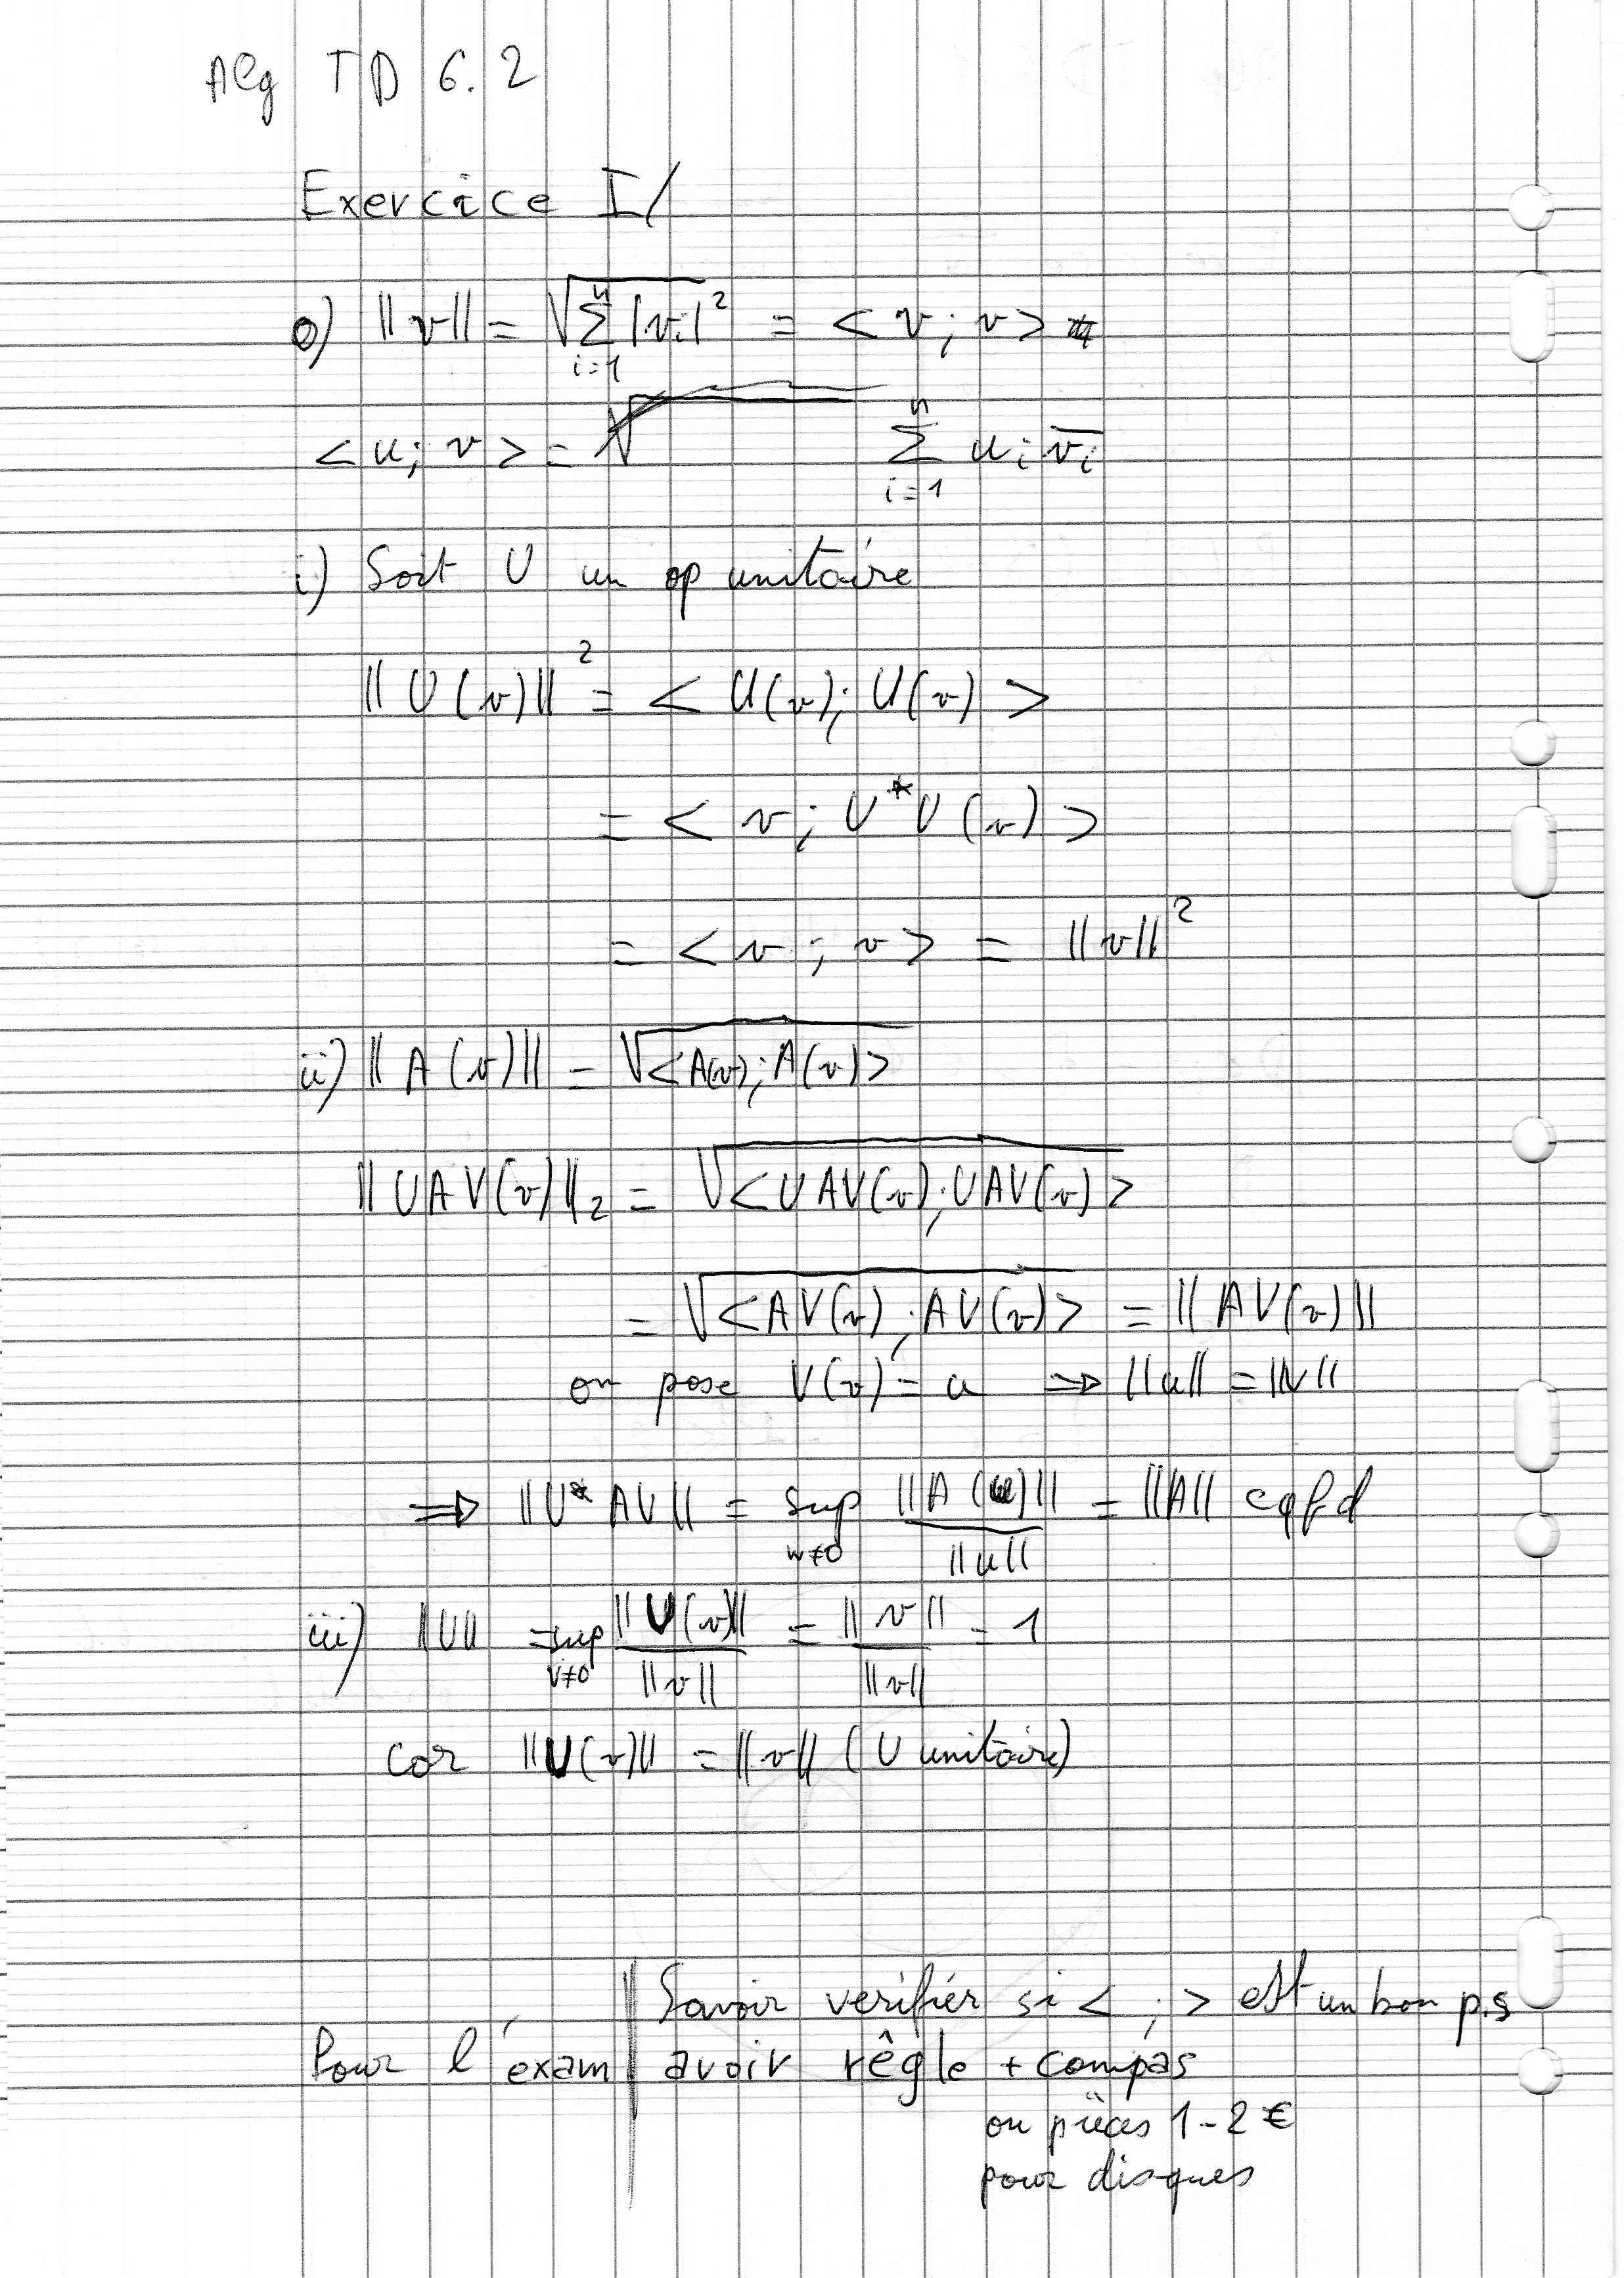 Alg TD 6.2
Exercice I/
0) ||v|| = √(∑_{i=1}^{n} |vi|²) = < v ; v >
< u ; v > = ∑_{i=1}^{n} ui v̅i
i) Soit U un op unitaire
|| U(v) ||² = < U(v) ; U(v) >
= < v ; U*U(v) >
= < v ; v > = ||v||²
ii) || A(v) || = √< A(v) ; A(v) >
|| UAV(v) ||₂ = √< UAV(v) ; UAV(v) >
= √< AV(v) ; AV(v) > = || AV(v) ||
on pose V(v) = u ⇒ ||u|| = ||v||
⇒ || U* AV || = sup_{u≠0} ||A(u)|| / ||u|| = ||A|| cqfd
iii) ||U|| = sup_{v≠0} ||U(v)|| / ||v|| = ||v|| / ||v|| = 1
car ||U(v)|| = ||v|| (U unitaire)
Savoir vérifier si < ; > est un bon p.s
Pour l'exam avoir rêgle + compas
ou pièces 1-2 €
pour disques